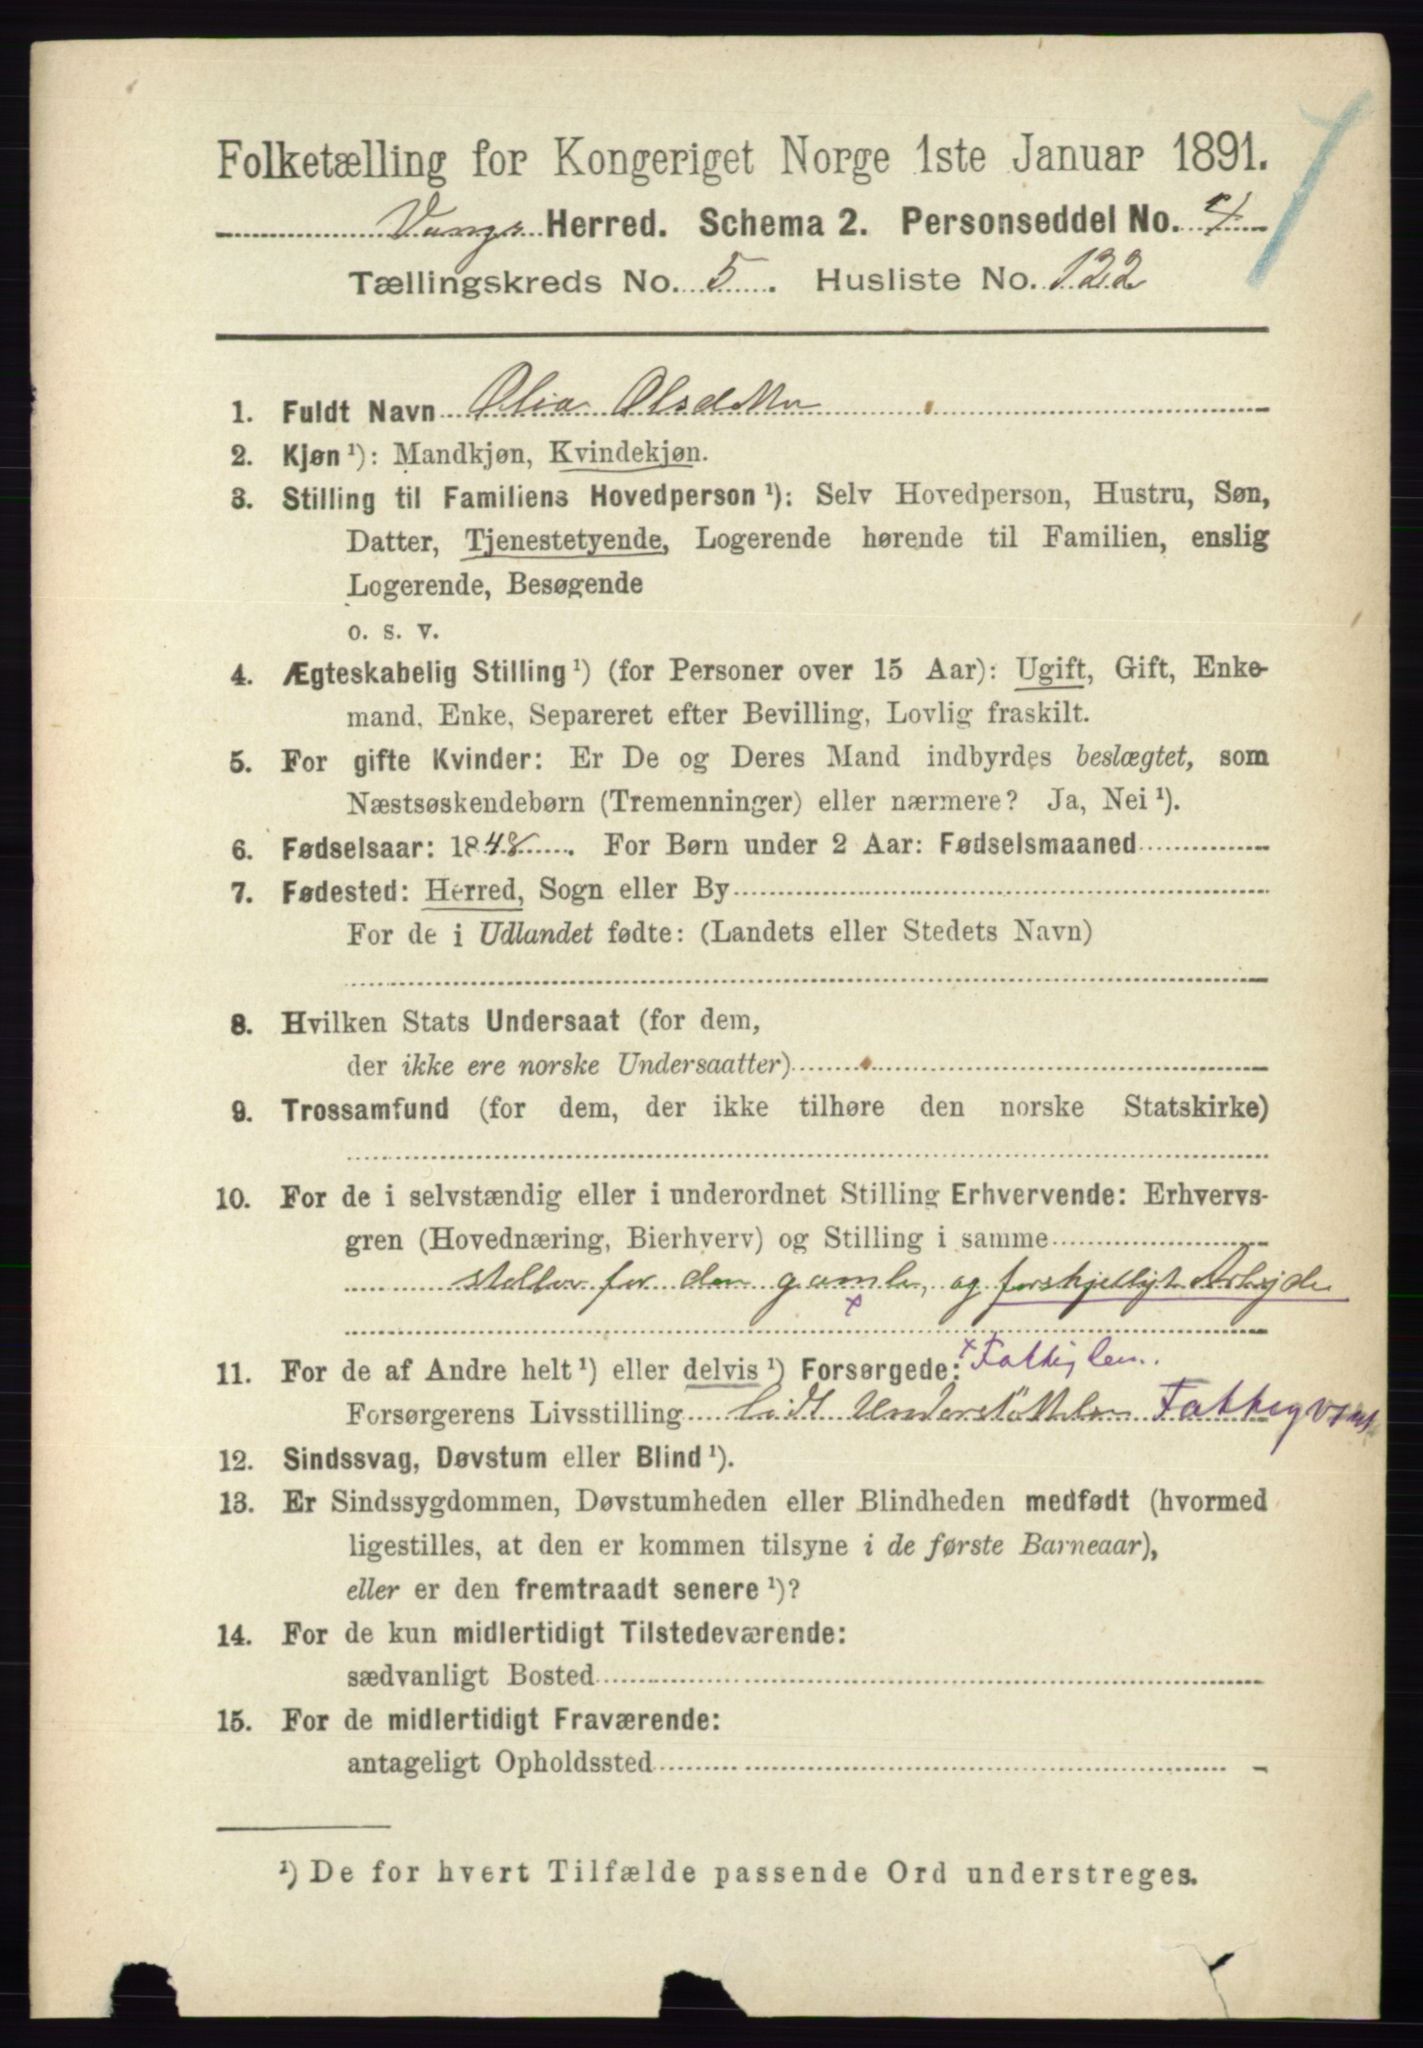 Folketælling for Kongeriget Norge 1ste Januar 1891.
Vangs Herred. Schema 2. Personseddel No. 4
Tællingskreds No. 5. Husliste No. 122
1. Fuldt Navn Olia Olsdatter
2. Kjøn ¹): Mandkjøn, Kvindekjøn.
3. Stilling til Familiens Hovedperson ¹): Selv Hovedperson, Hustru, Søn,
Datter, Tjenestetyende, Logerende hørende til Familien, enslig
Logerende, Besøgende
o. s. v.
4. Ægteskabelig Stilling ¹) (for Personer over 15 Aar): Ugift, Gift, Enke-
mand, Enke, Separeret efter Bevilling, Lovlig fraskilt.
5. For gifte Kvinder: Er De og Deres Mand indbyrdes beslægtet, som
Næstsøskendebørn (Tremenninger) eller nærmere? Ja, Nei ¹).
6. Fødselsaar: 1848. For Børn under 2 Aar: Fødselsmaaned
7. Fødested: Herred, Sogn eller By
For de i Udlandet fødte: (Landets eller Stedets Navn)
8. Hvilken Stats Undersaat (for dem,
der ikke ere norske Undersaatter)
9. Trossamfund (for dem, der ikke tilhøre den norske Statskirke)
10. For de i selvstændig eller i underordnet Stilling Erhvervende: Erhvervs-
gren (Hovednæring, Bierhverv) og Stilling i samme
steller for den gamle, og forskjelligt Arbejde
x
11. For de af Andre helt ¹) eller delvis ¹) Forsørgede: x Fattiglem.
Forsørgerens Livsstilling lidt Understøttelse Fattigv
12. Sindssvag, Døvstum eller Blind ¹).
13. Er Sindssygdommen, Døvstumheden eller Blindheden medfødt (hvormed
ligestilles, at den er kommen tilsyne i de første Barneaar),
eller er den fremtraadt senere ¹)?
14. For de kun midlertidigt Tilstedeværende:
sædvanligt Bosted
15. For de midlertidigt Fraværende:
antageligt Opholdssted
¹) De for hvert Tilfælde passende Ord understreges.